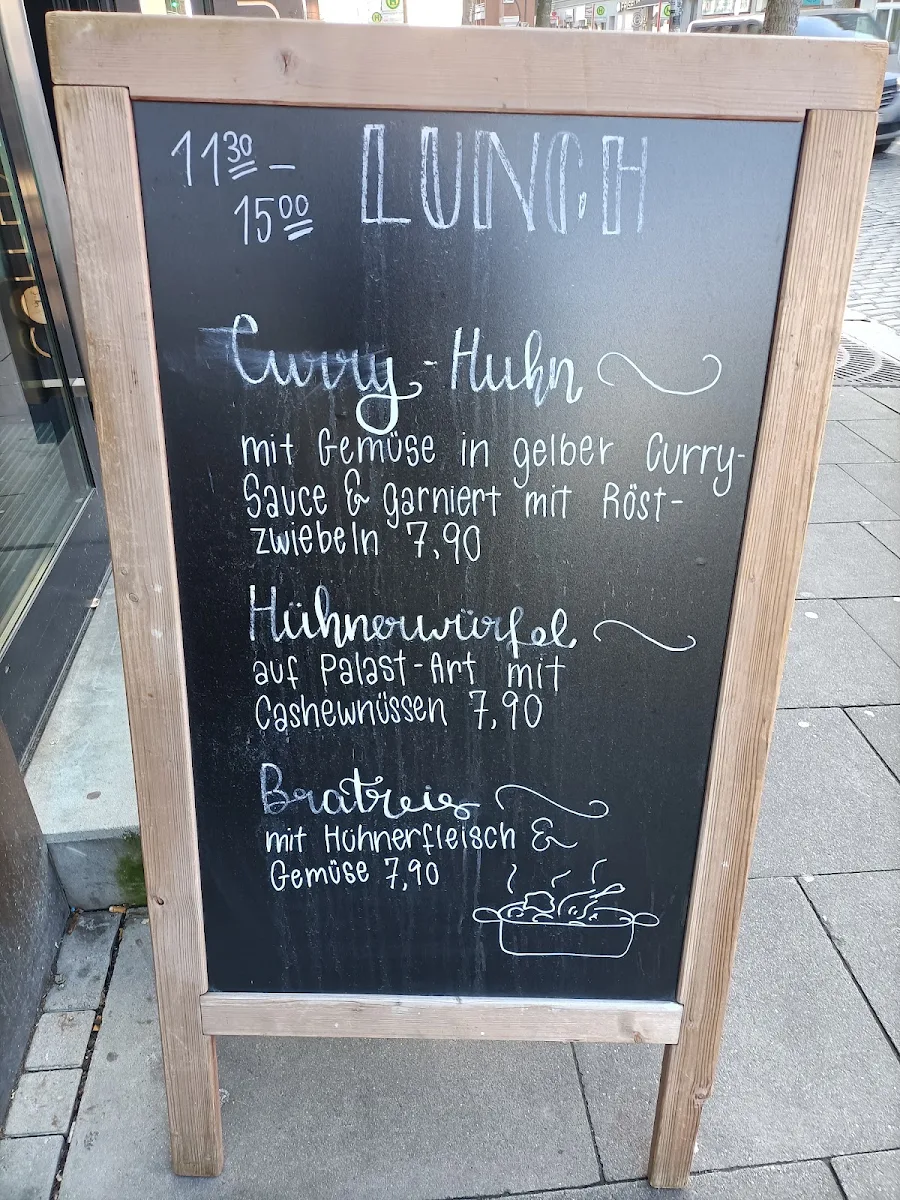 11³⁰ – LUNCH
15⁰⁰
Curry-Huhn
mit Gemüse in gelber Curry-
Sauce & garniert mit Röst-
zwiebeln 7,90
Hühnerwürfel
auf Palast-Art mit
Cashewnüssen 7,90
Bratreis
mit Hühnerfleisch &
Gemüse 7,90